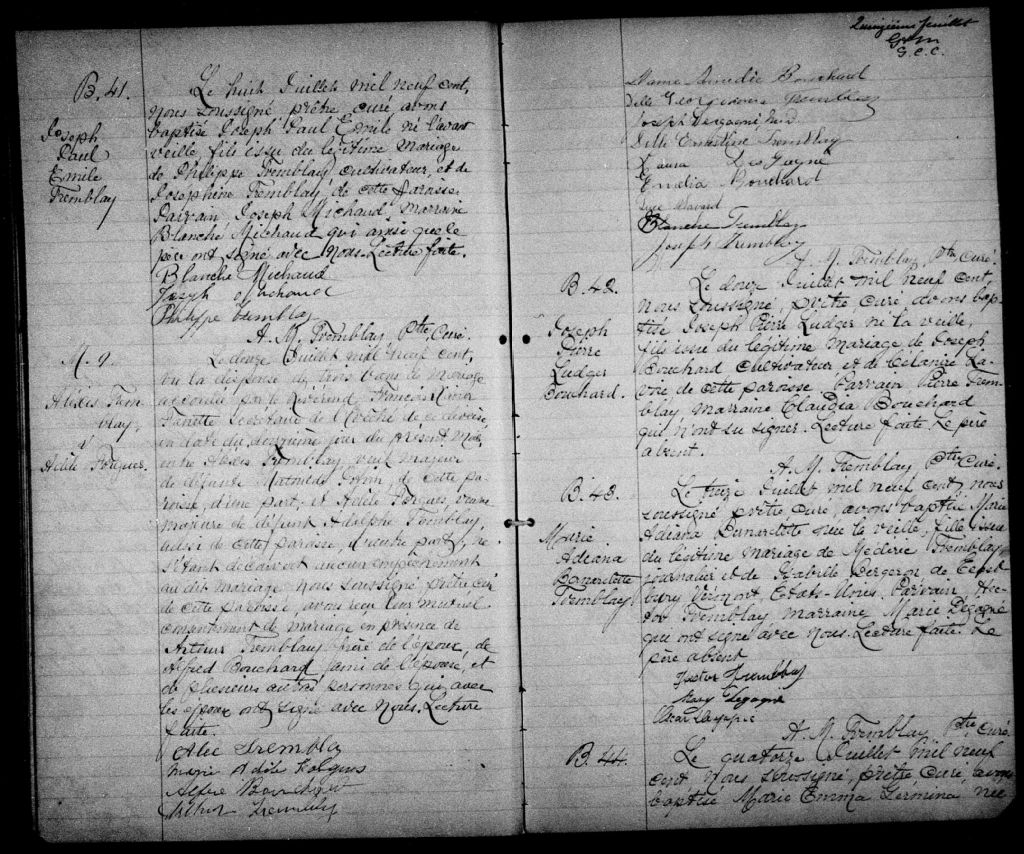 B. 41.
Joseph
Paul
Emile
Tremblay
Le huit Juillet mil neuf cent,
Nous soussigné prêtre curé, avons
baptisé Joseph Paul Emile né l'avant
veille, fils issu du légitime mariage
de Philippe Tremblay, cultivateur, et de
Joséphine Tremblay, de cette paroisse.
Parrain Joseph Michaud, Marraine
Blanche Michaud qui ainsi que le
père ont signé avec Nous. Lecture faite.
Blanche Michaud
Joseph Michaud
Philippe Tremblay
A. M. Tremblay Ptre Curé.
M. 9.
Alexis Trem
blay
&
Adèle
Le douze Juillet mil neuf cent,
vu la dispense de trois bans de mariage
accordée par le Révérend François
Secrétaire de l'Évêché de ce diocèse,
en date du deuxième jour du présent mois,
entre Alexis Tremblay, veuf majeur
de défunte Mathilde de cette pa-
roisse, d'une part, et Adèle veuve
majeure de défunt Adolphe Tremblay,
aussi de cette paroisse, d'autre part, ne
s'étant découvert aucun empêchement
au dit mariage Nous soussigné prêtre curé
de cette paroisse, avons reçu leur mutuel
consentement de mariage en présence de
Arthur Tremblay frère de l'époux, de
Alfred Bouchard ami de l'épouse, et
de plusieurs autres personnes qui, avec
les époux ont signé avec Nous. Lecture
faite.
Tremblay
Marie Adèle
Alfred
Arthur Tremblay
Quinzième feuillet
G. C. C.
Dame Amédée Bouchard
Delle Georgianna Tremblay
Joseph
Delle Ernestine Tremblay
Laura
Emélia Bouchard
Blanche Tremblay
Joseph Tremblay
A. M. Tremblay Ptre Curé.
B. 42.
Joseph
Pierre
Ludger
Bouchard.
Le douze Juillet mil neuf cent
Nous soussigné, prêtre curé avons bap-
tisé Joseph Pierre Ludger né la veille,
fils issu du légitime mariage de Joseph
Bouchard cultivateur et de Célanire La-
voie de cette paroisse. Parrain Pierre Trem-
blay Marraine Claudia Bouchard
qui n'ont su signer. Lecture faite. Le père
absent.
A. M. Tremblay Ptre Curé.
B. 43.
Marie
Adriana
Bernardette
Tremblay
Le treize Juillet mil neuf cent, nous
soussigné prêtre curé, avons baptisé Marie
Adriana Bernardette née la veille, fille issue
du légitime mariage de Méderic Tremblay,
journalier et de Isabelle Bergeron, de
Vermont Etats-Unis. Parrain, Hec-
tor Tremblay Marraine Marie Degagné
qui ont signé avec Nous. Lecture faite. Le
père absent
Hector Tremblay
Mary Degagné
Oscar
A. M. Tremblay Ptre Curé.
B. 44.
Le quatorze Juillet mil neuf
cent Nous soussigné, prêtre curé avons
baptisé Marie Emma Germina née